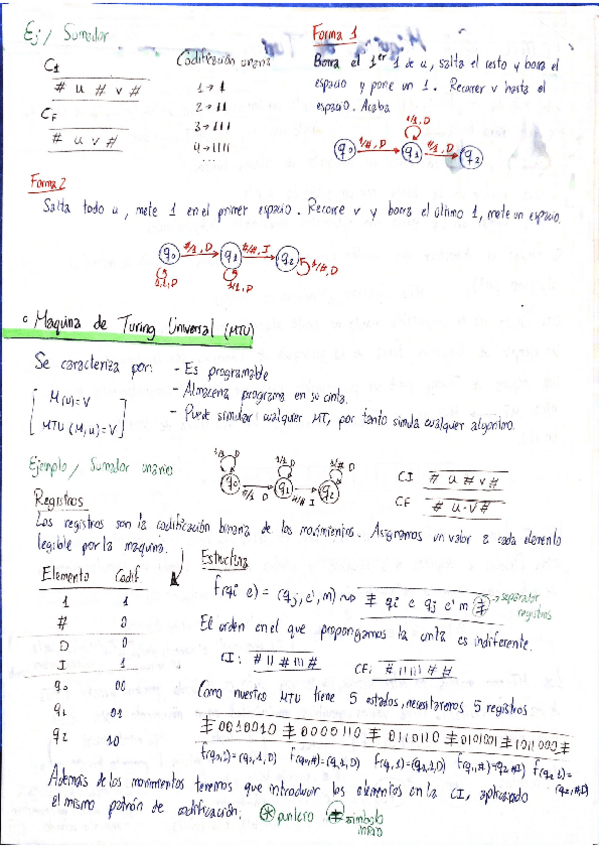 Ej/ Sumador
CI
# u # v #
CF
# u v #
Codificación unaria
1 → 1
2 → 11
3 → 111
4 → 1111
...
Forma 1
Borra el 1er 1 de u, salta el resto y borra el
espacio y pone un 1. Recorrer v hasta el
espacio. Acaba
q0 1/#, D q1 1/1, D #/1, D q2
Forma 2
Salta todo u, mete 1 en el primer espacio. Recorre v y borra el último 1, mete un espacio.
q0 #/1, D q1 #/#, I q2 1/#, D
1/1, D 1/1, D
• Maquina de Turing Universal (MTU)
Se caracteriza por: - Es programable
- Almacena programa en su cinta.
- Puede simular cualquier MT, por tanto simula cualquier algoritmo.
M(u)=v
MTU(M,u)=v
Ejemplo/ Sumador unario
q0 #/1 D q1 #/# I q2
CI # u # v #
CF # u v #
Registros
Los registros son la codificación binaria de los movimientos. Asignamos un valor a cada elemento
legible por la maquina.
Elemento Codif.
1 1
# 0
D 0
I 1
q0 00
q1 01
q2 10
Estructura
f(qi e) = (qj, e', m) ~> ‡ qi e qj e' m ‡ → separator registros
El orden en el que propongamos la cinta es indiferente.
CI: # 11 # 111 # CF: # 11111 # #
Como nuestro MTU tiene 5 estados, necesitaremos 5 registros
‡ 0010010 ‡ 0000110 ‡ 0110110 ‡ 0101001 ‡ 1011000 ‡
f(q0,1)=(q0,1,D) f(q0,#)=(q1,1,D) f(q1,1)=(q1,1,D) f(q1,#)=(q2,#,I) f(q2,1)=(q2,#,D)
Además de los movimientos tenemos que introducir los elementos en la CI, aplicando
el mismo patrón de codificación: * puntero ‡ símbolo inicio